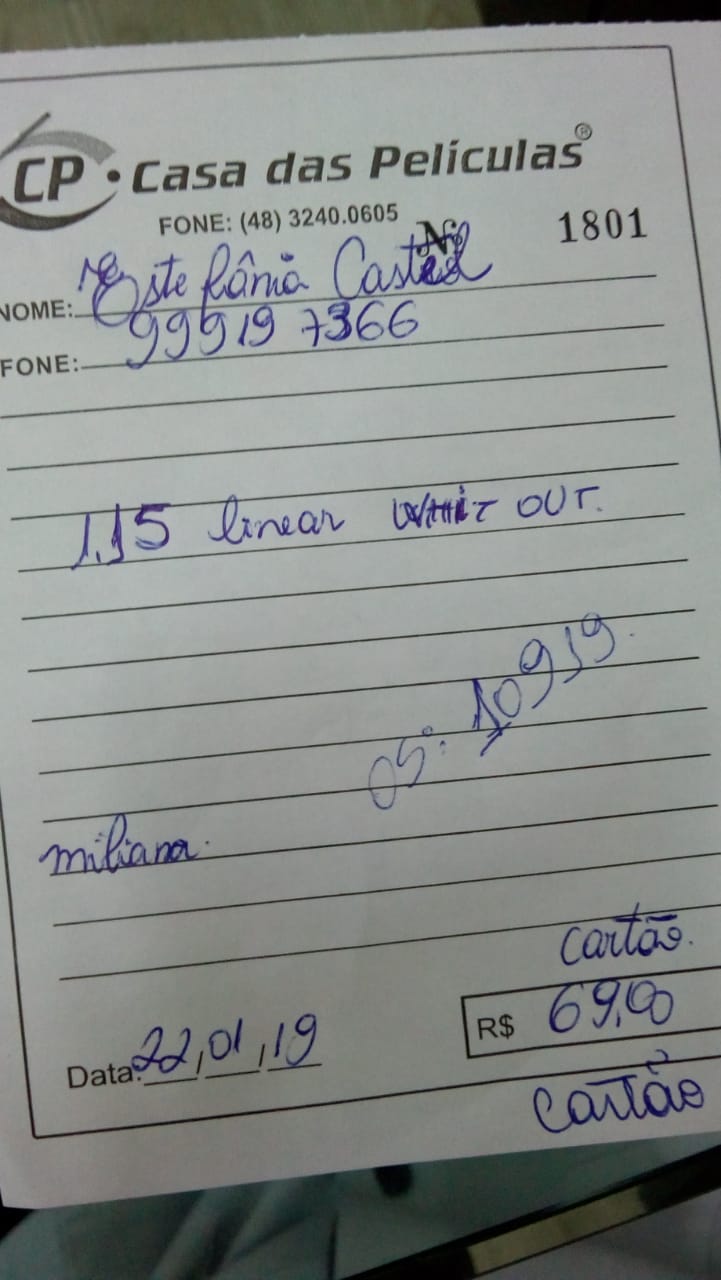 CP • Casa das Películas®
FONE: (48) 3240.0605
Nº 1801
NOME: Mª Estefânia Castel
FONE: 99919 7366
1.15 linear WHIT OUT.
OS: 10919.
miliana.
cartão.
Data: 22,01,19
R$ 69,00
cartão